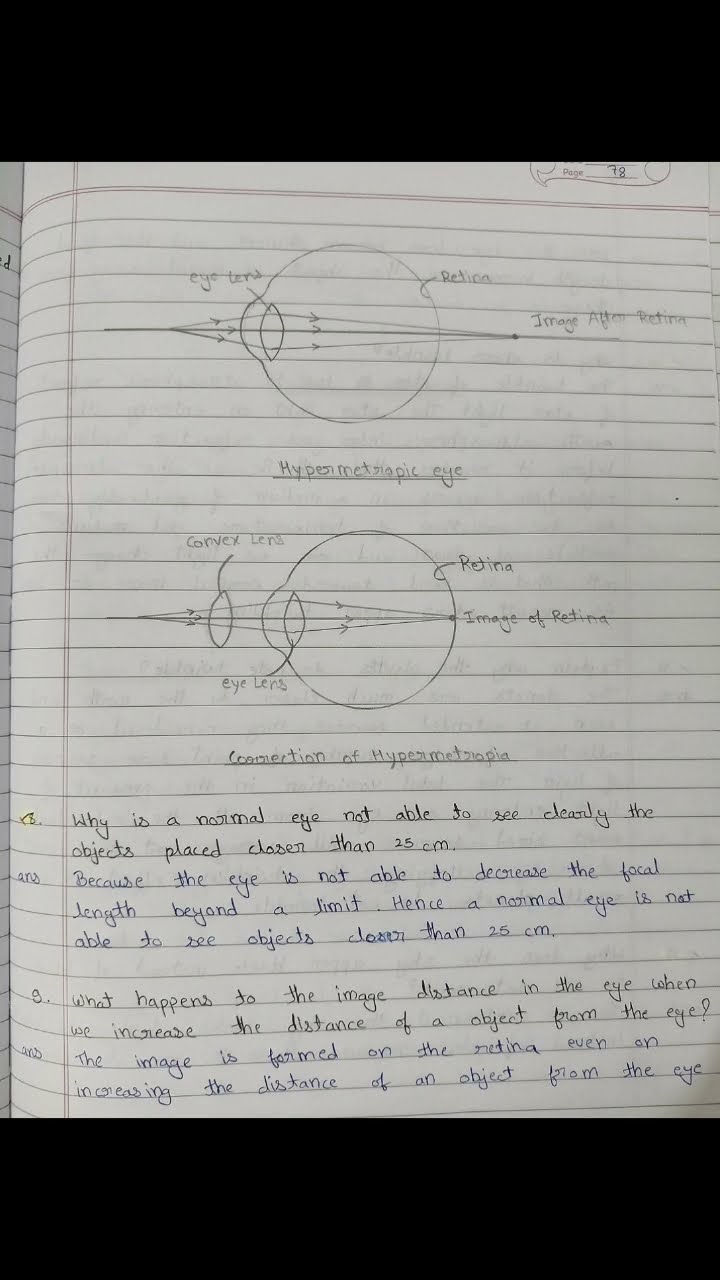 Page 78
ed
eye Lens
Retina
Image After Retina
Hypermetriopic eye
Convex Lens
Retina
Image of Retina
eye Lens
Correction of Hypermetropia
8. Why is a normal eye not able to see clearly the
objects placed closer than 25 cm.
ans Because the eye is not able to decrease the focal
length beyond a limit. Hence a normal eye is not
able to see objects closer than 25 cm.
9. What happens to the image distance in the eye when
we increase the distance of a object from the eye?
ans The image is formed on the retina even on
increasing the distance of an object from the eye